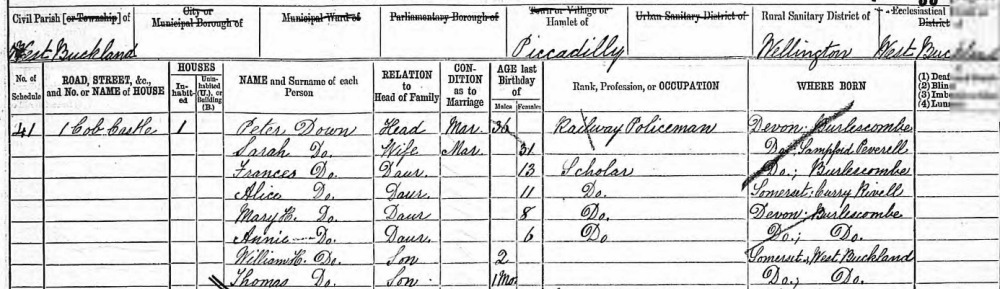 Civil Parish [or Township] of | City or Municipal Borough of | Municipal Ward of | Parliamentary Borough of | Town or Village or Hamlet of | Urban Sanitary District of | Rural Sanitary District of | Ecclesiastical District
West Buckland | Piccadilly | Wellington | West Buckland
No. of Schedule | ROAD, STREET, &c., and No. or NAME of HOUSE | HOUSES Inhabit-ed | Unin-habited (U.), or Building (B.) | NAME and Surname of each Person | RELATION to Head of Family | CON-DITION as to Marriage | AGE last Birthday of Males Females | Rank, Profession, or OCCUPATION | WHERE BORN | (1) Deaf (2) Blin (3) Imbe (4) Luna
41 | 1 Cob Castle | 1 | Peter Down | Head | Mar. | 36 | Railway Policeman | Devon; Burlescombe
Sarah Do. | Wife | Mar. | 31 | Do.; Sampford Peverell
Frances Do. | Daur. | 13 | Scholar | Do.; Burlescombe
Alice Do. | Daur. | 11 | Do. | Somerset; Curry Rivell
Mary H. Do. | Daur | 8 | Do. | Devon; Burlescombe
Annie Do. | Daur. | 6 | Do | Do.; Do.
William H. Do. | Son | 2 | Somerset; West Buckland
Thomas Do. | Son. | 1 Mo. | Do.; Do.